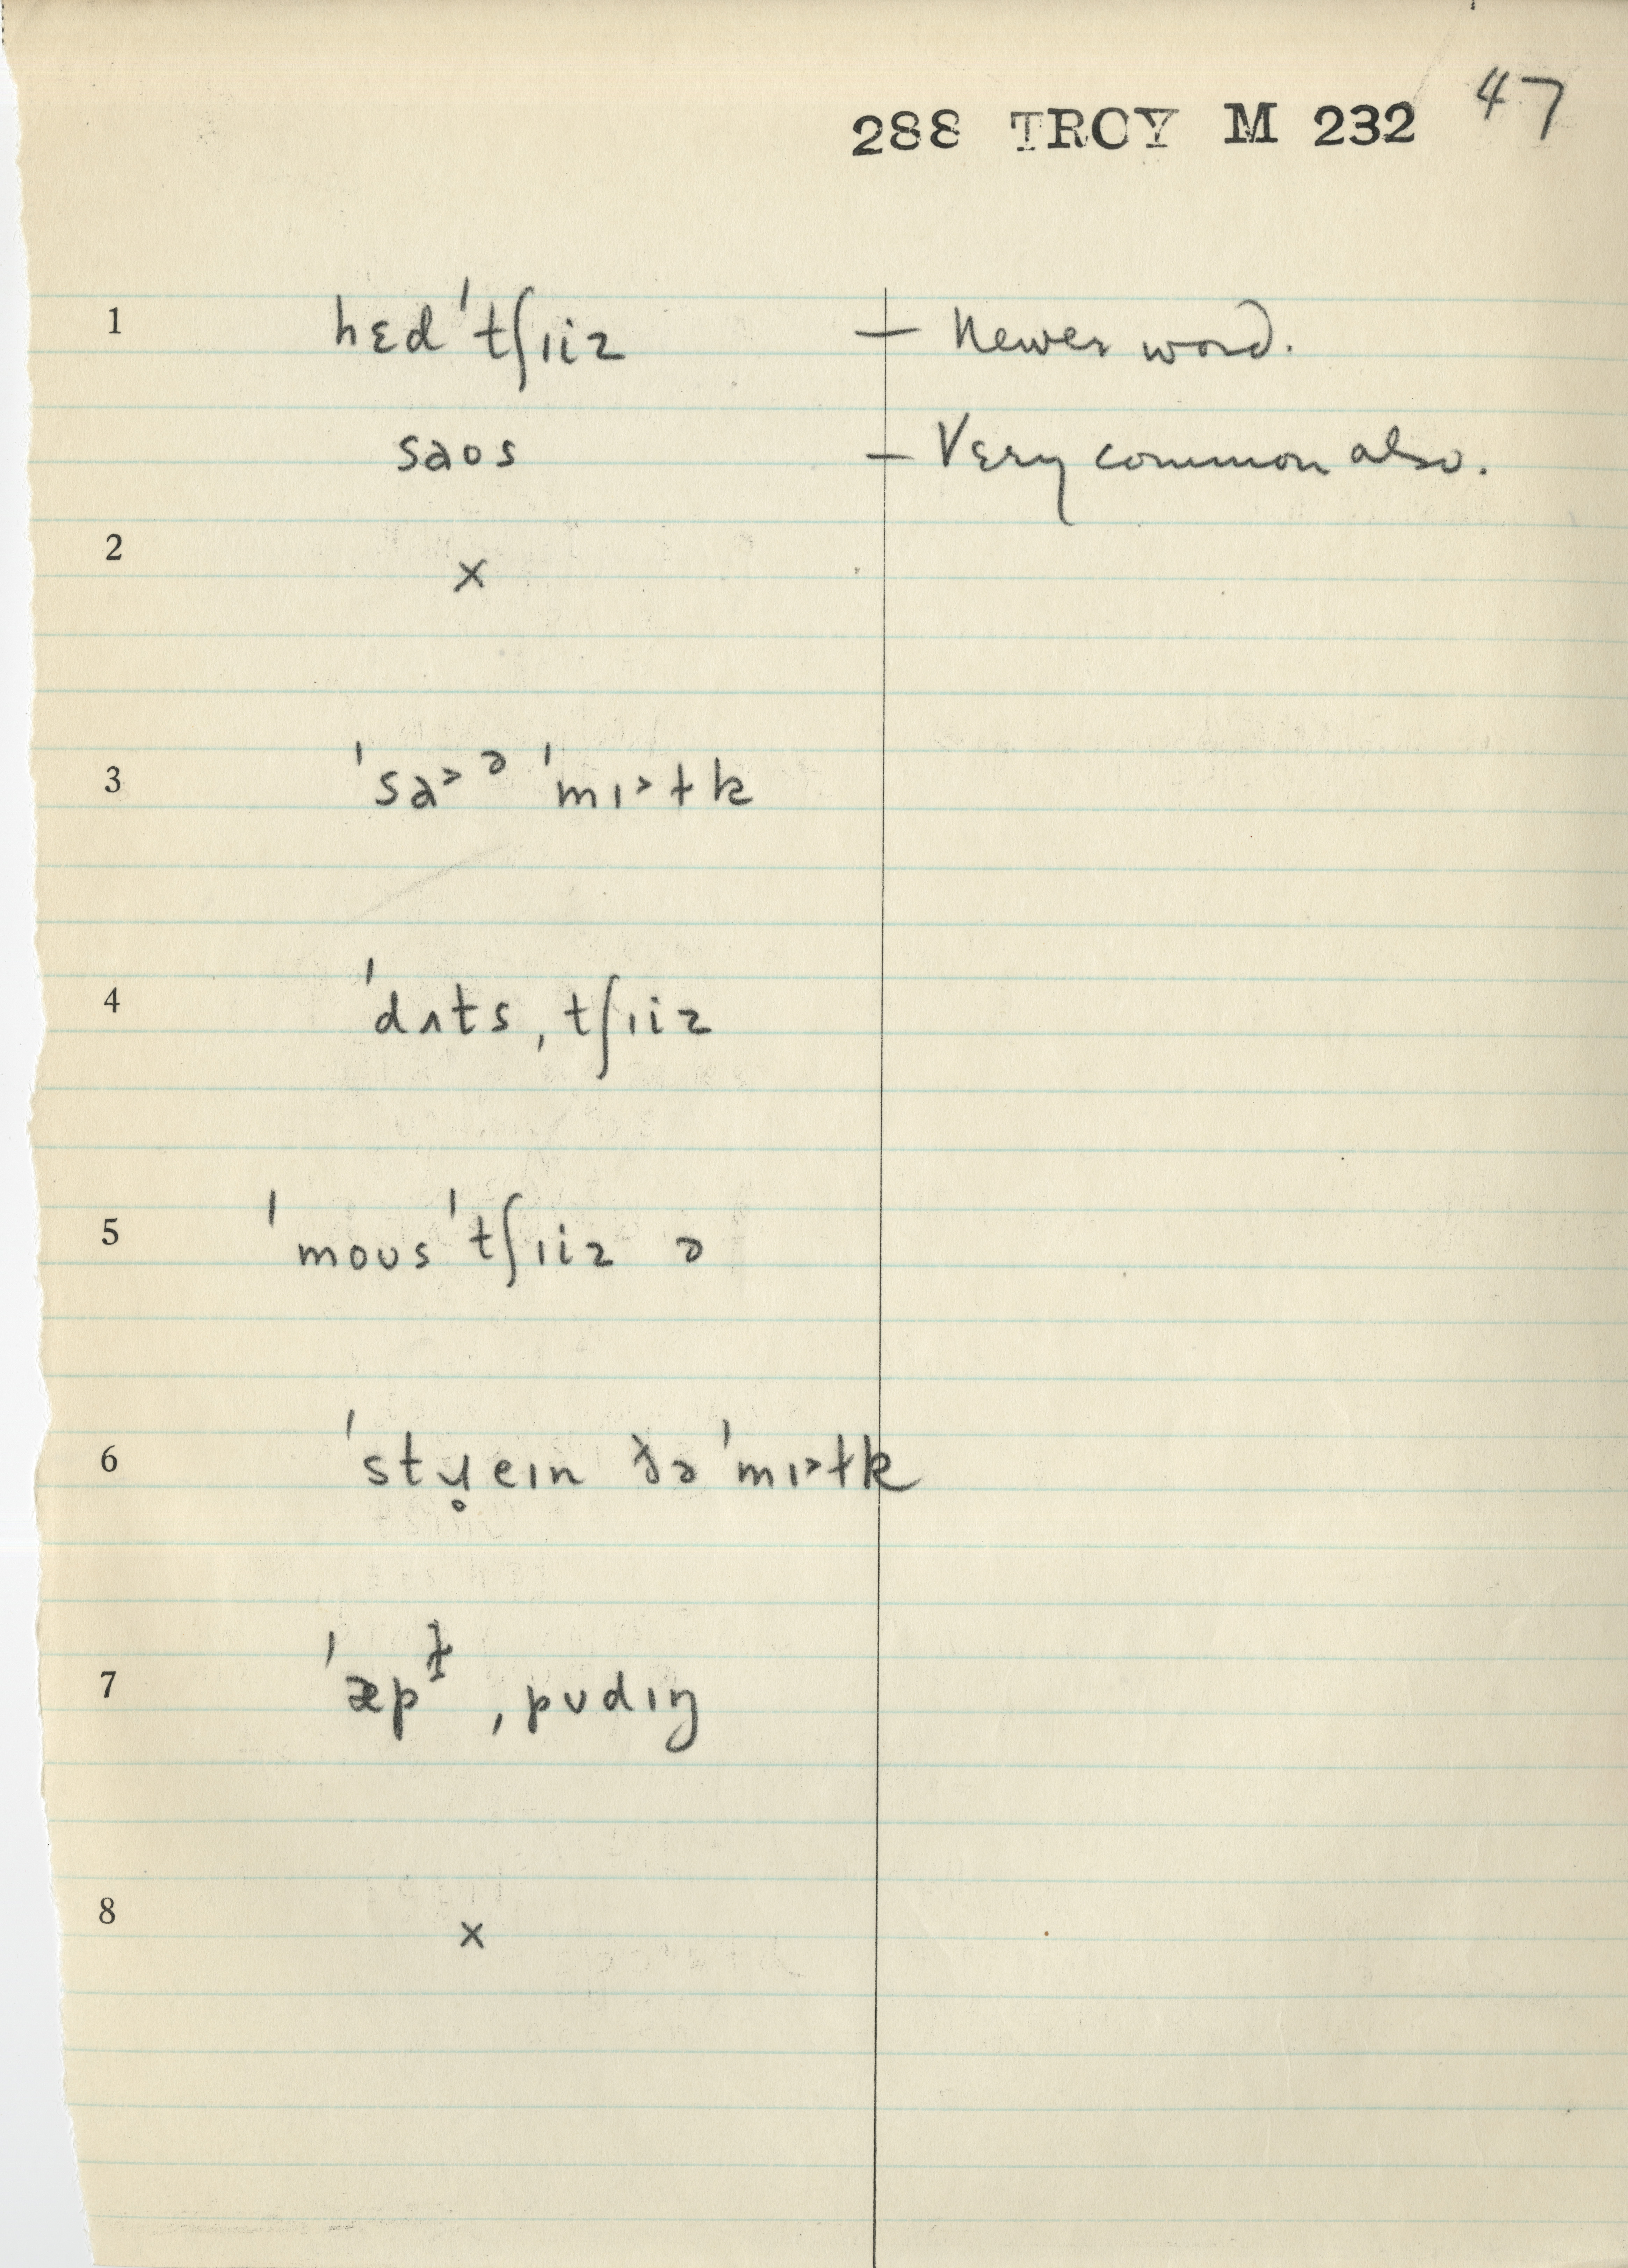 288 TROY M 232 47
1 hɛd ˈtʃɪiz — Newer word.
saos — Very common also.
2 x
3 ˈsa˃ ᵊ ˈmɪ˃ɫk
4 ˈdʌts ˌtʃɪiz
5 ˈmous ˈtʃɪiz ə
6 ˈstɹ̥eɪn ðə ˈmɪ˃ɫk
7 ˈæpɫ̩ ˌpʊdɪŋ
8 x